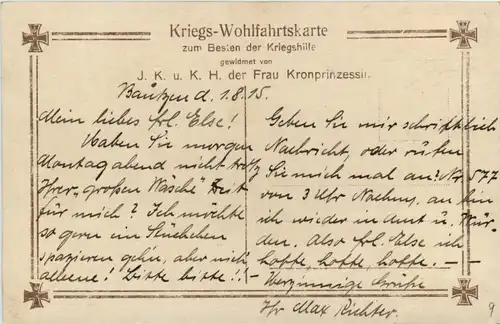 Kriegs-Wohlfahrtskarte
zum Besten der Kriegshilfe
gewidmet von
J. K. u. K. H. der Frau Kronprinzessin.
Bautzen d. 1.8.15.
Mein liebes Frl. Else!
Haben Sie morgen
Montagabend nicht trotz
Ihrer „großen Wäsche" Zeit
für mich? Ich möchte
so gern ein Stückchen
spazieren gehn, aber nicht
alleine! Bitte bitte!!
Geben Sie mir schriftlich
Nachricht, oder rufen
Sie mich mal an! Nr 577
von 3 Uhr Nachm. an bin
ich wieder in Amt u. Wür-
den. Also Frl. Else ich
hoffe, hoffe, hoffe. - -
Herzinnige Grüße
Ihr Max Richter.
9